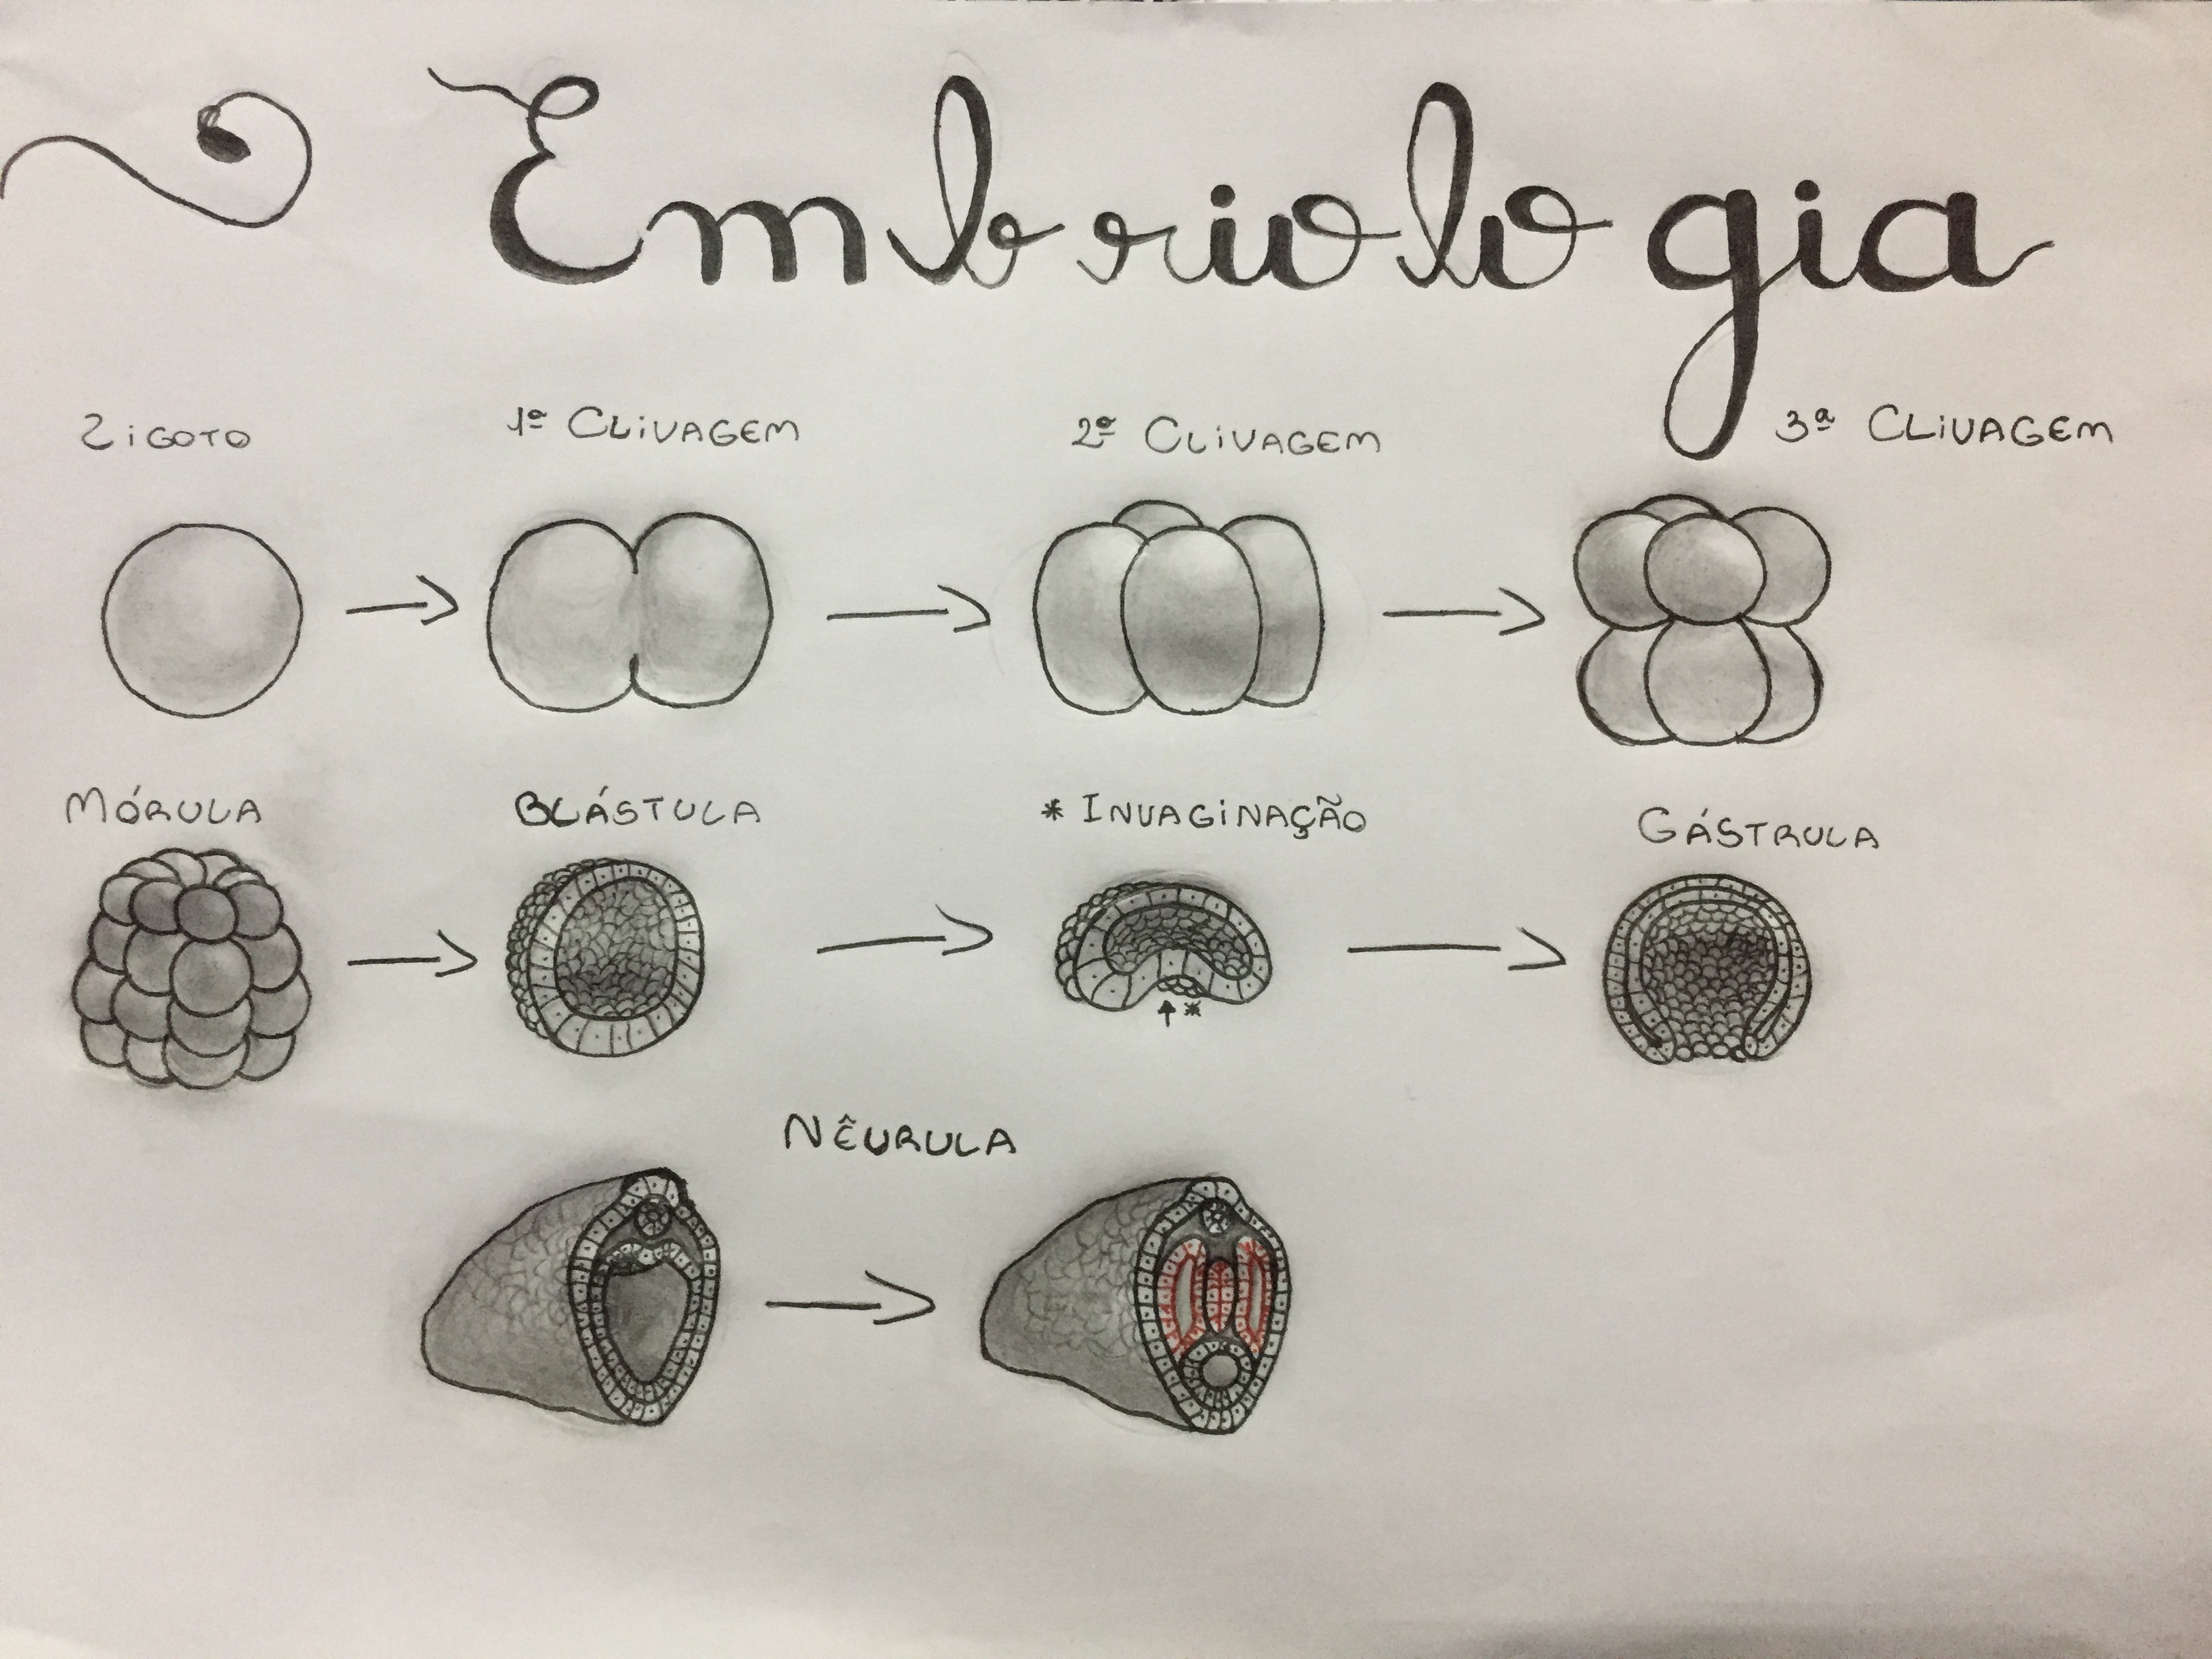 Embriologia
Zigoto 1ª Clivagem 2ª Clivagem 3ª Clivagem
Mórula Blástula * Invaginação Gástrula
*
Nêurula